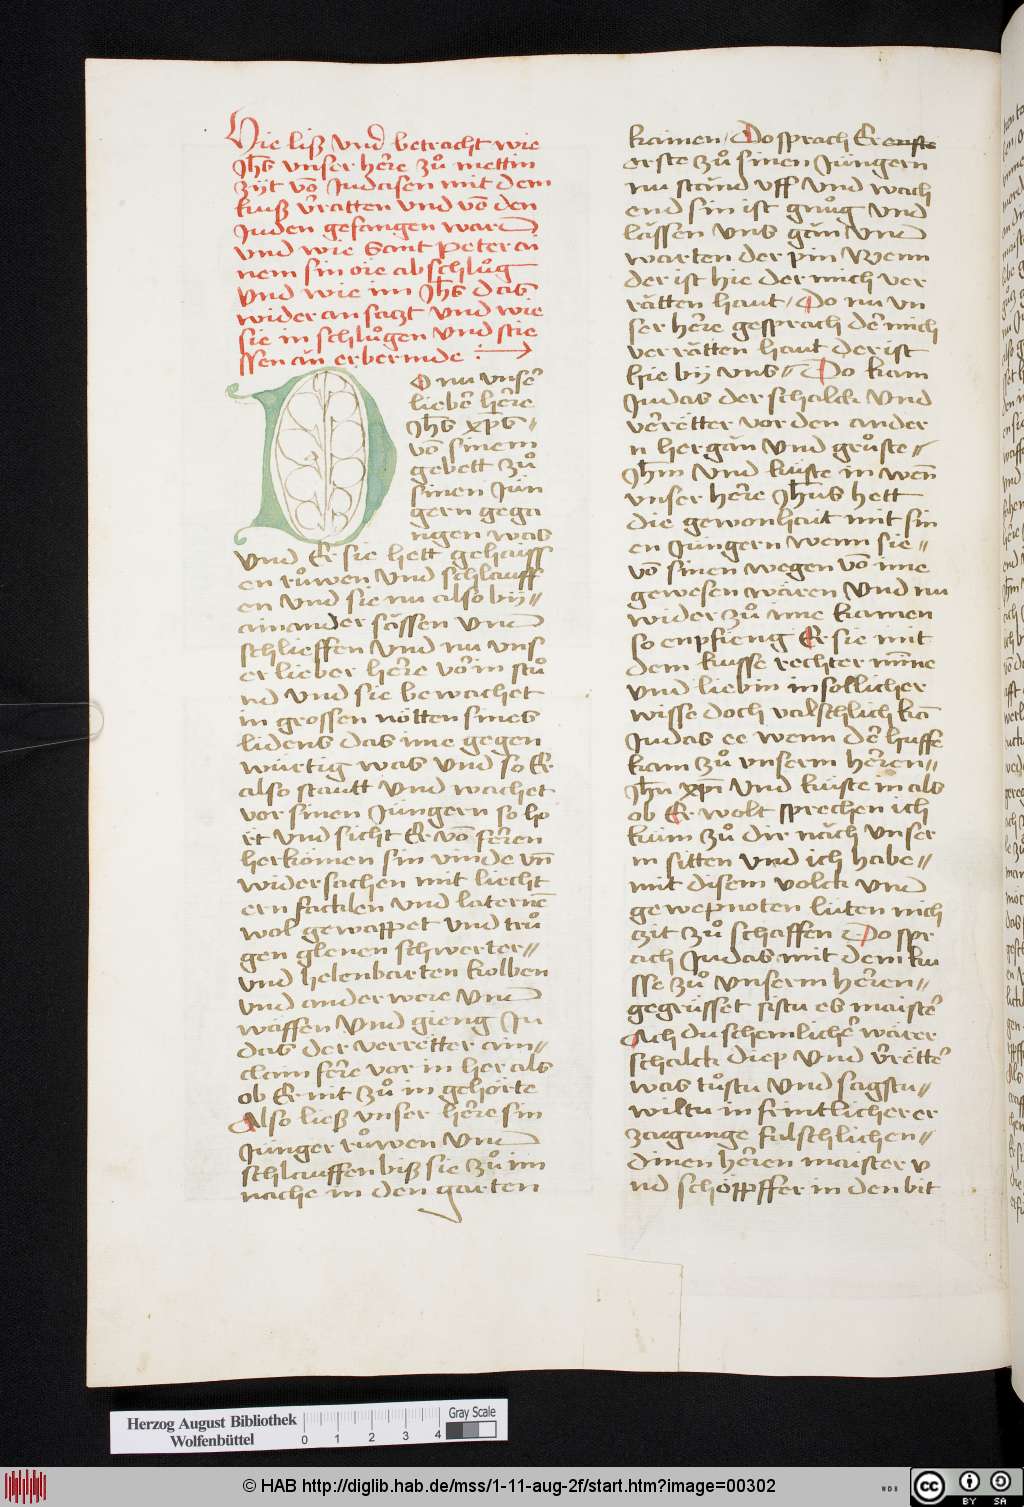 Hie liß vnd betracht wie
Jhs vnser herre zů mettin
zijt võ Judasen mit dem
kuß v̾ratten vnd võ den
Juden gefangen ward
vnd wie sant peter ai
nem sin ore abschlůg
vnd wie im Jhs das
wider an satzt vnd wie
sie in schlůgen vnd stie
ssen ăn erbermde :
Do nu vnser̾
lieber̾ her̾re
Jhs xps
võ sinem
gebett zů
sinen Jün
gern gega
ngen was
vnd Er sie hett gehaiss
en růwen vnd schlauff
en vnd sie nu also bij
ainander săssen vnd
schlieffen vnd nu vns
er lieber her̾re vor̾ in stů
nd vnd sie bewachet
in grossen nötten sines
lidens das ime gegen
würtig was vnd so Er
also stautt vnd wachet
vor sinen Jüngern so ho
rt vnd sicht Er võ fer̾ren
herkömen sin vinde vñ
widersachen mit liecht
ern facklen vnd laternẽ
wol gewappet vnd trů
gen glenen schwerter
vnd helenbarten kolben
vnd ander were vnd
waffen vnd gieng Ju
das der verretter ain
clain fer̾re vor in her als
ob Er nit zů in gehörte
Also ließ vnser her̾re sin
Jünger růwen vnd
schlauffen biß sie zů im
nache in den garten
kamen / Do sprach Er
erste zů sinen Jüngern
nu stănd vff vnd wach
end sin ist gnůg vnd
lăssen vns găn vnd
warten der pin Wenn
der ist hie der mich ver
rătten haut / Do nu vn
ser her̾re gesprach der̾ mich
verrătten haut der ist
hie bij vns Do kam
Judas der schalck vnd
ver̾rětter vor den ander
n her găn vnd grůste
Jhm vnd kuste in wen̄
vnser her̾re Jhus hett
die gewonhait mit sin
en Jüngern wenn sie
võ sinen wegen võ ime
gewesen wären vnd nu
wider zů ime kamen
so enpfieng Er sie mit
dem kusse rechter miñe
vnd liebin in sollicher
wisse doch valschlich kã
Judas ee wenn der̾ huffe
kam zů vnserm her̾ren
Jhũ xpm̄ vnd kuste in als
ob Er wolt sprechen ich
kum zů dir năch vnser
m sitten vnd ich habe
mit disem volck vnd
gewepnoten lüten nich
zit zů schaffen Do spr
ach Judas mit dem ku
sse zů vnserm her̾ren
gegrüsset sistu es maister̾
Ach du schemlicher̾ warer
schalck diep vnd v̾rětter̾
was tůstu vnd sagstu
wiltu in frintlicher er
zaigunge falschlichen
dinen her̾ren maister v
nd schöppffer in den bit
Herzog August Bibliothek
Wolfenbüttel
0 1 2 3 4
Gray Scale
© HAB http://diglib.hab.de/mss/1-11-aug-2f/start.htm?image=00302
WDB
cc BY SA